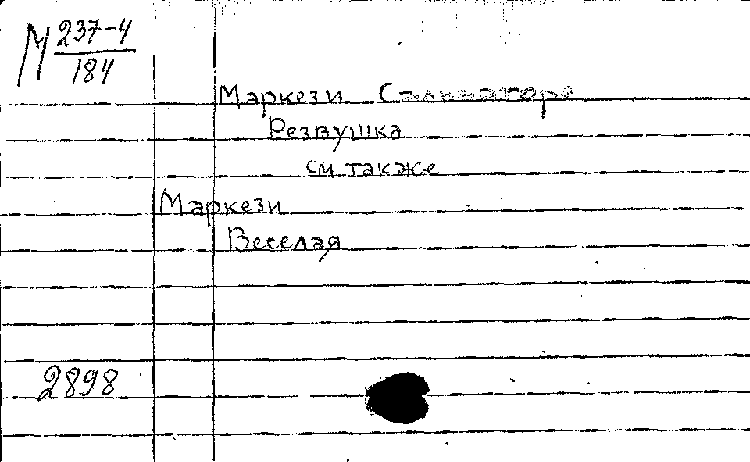 М 237-4
184
Маркези
Резвушка
см. также
Маркези
Веселая
2898